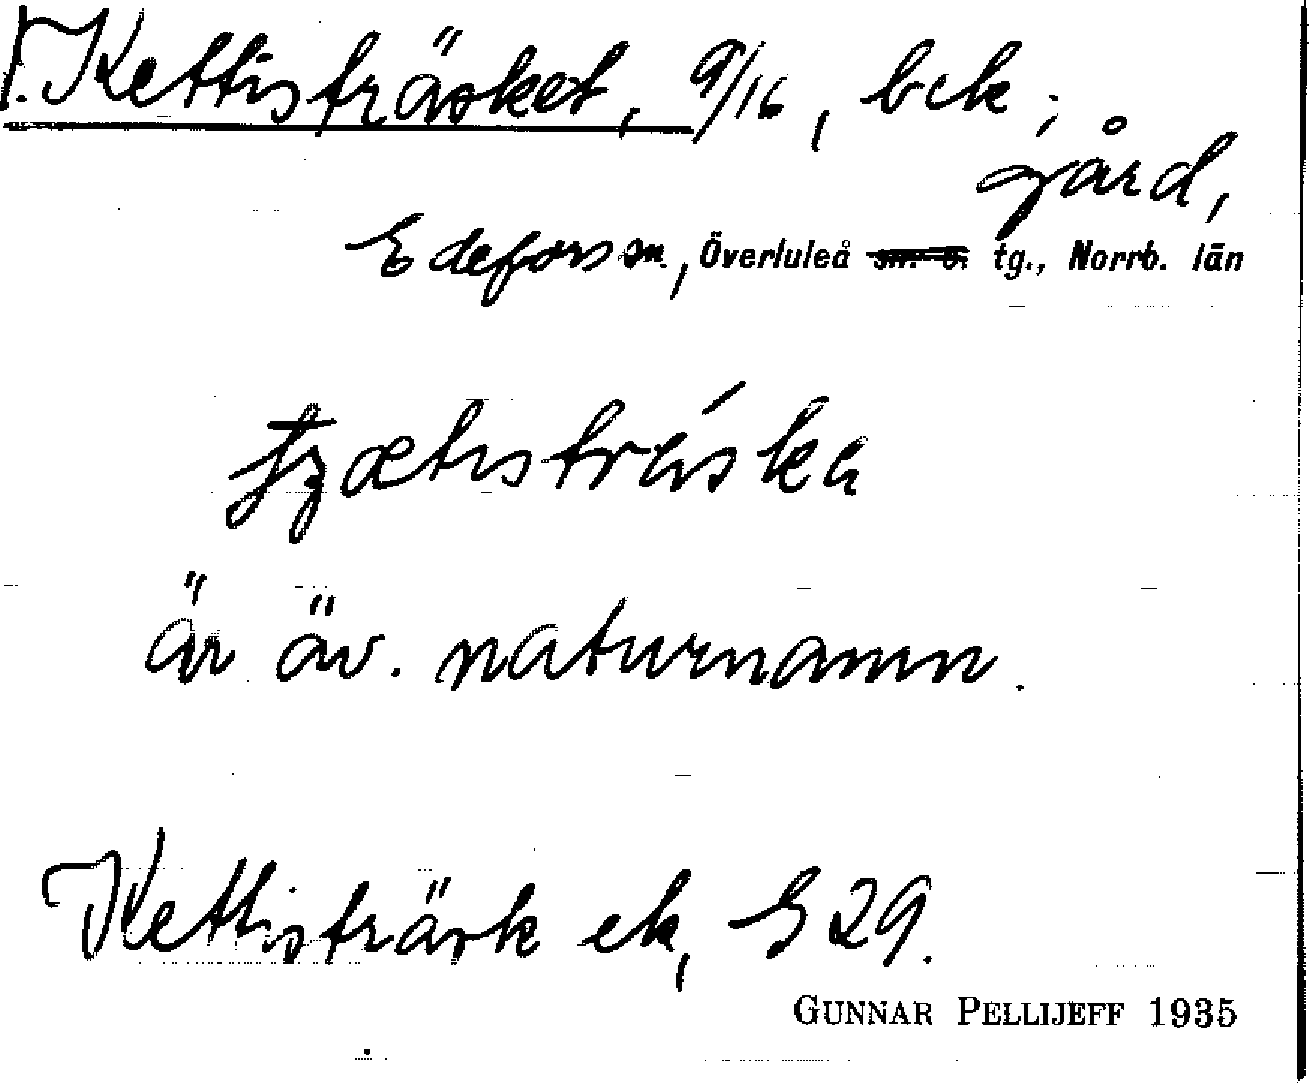 1. Kettisträsket, 9/16, bek;
gård,
Edefors sn., Överluleå tg., Norrb. län
är äv. naturnamn.
Kettisträsk ek, G 29.
GUNNAR PELLIJEFF 1935